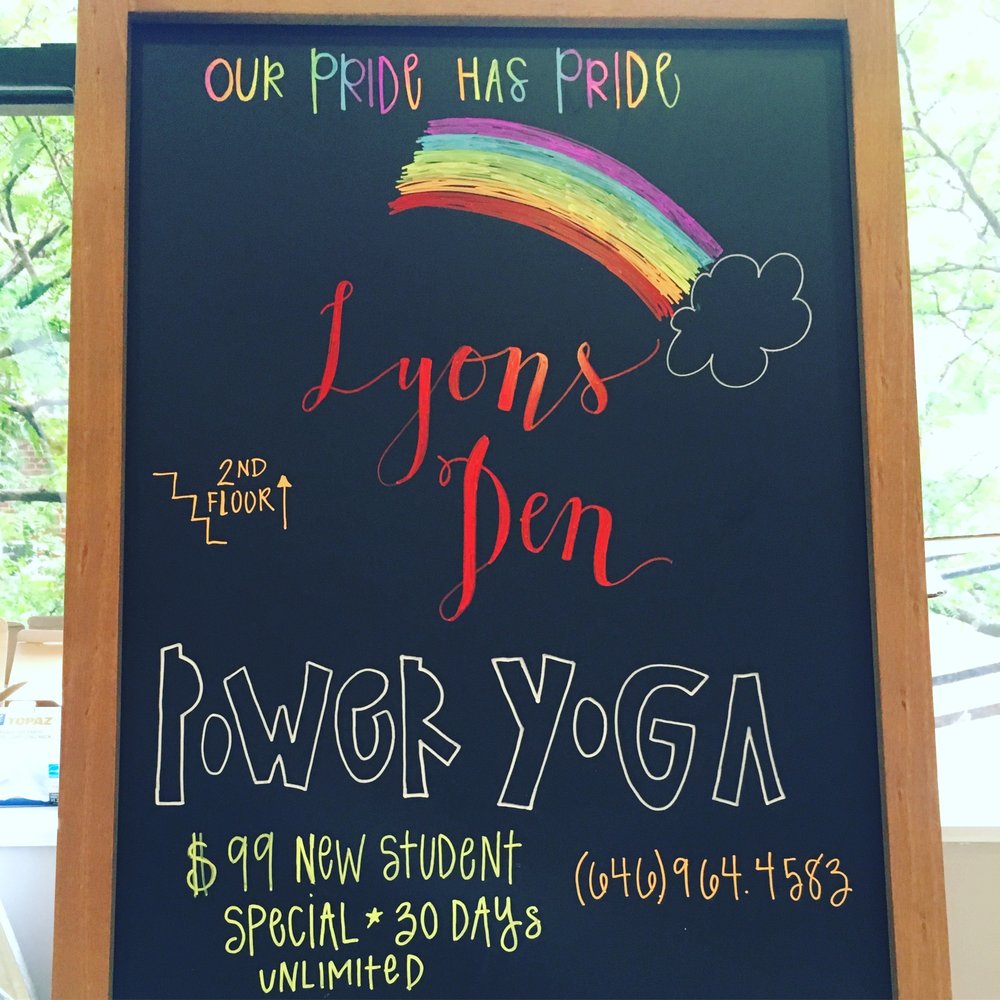 OUR PRIDE HAS PRIDE
Lyons
Den
2ND
FLOOR
POWER YOGA
$99 NEW STUDENT
SPECIAL * 30 DAYS
UNLIMITED
(646)964.4583
TOPAZ